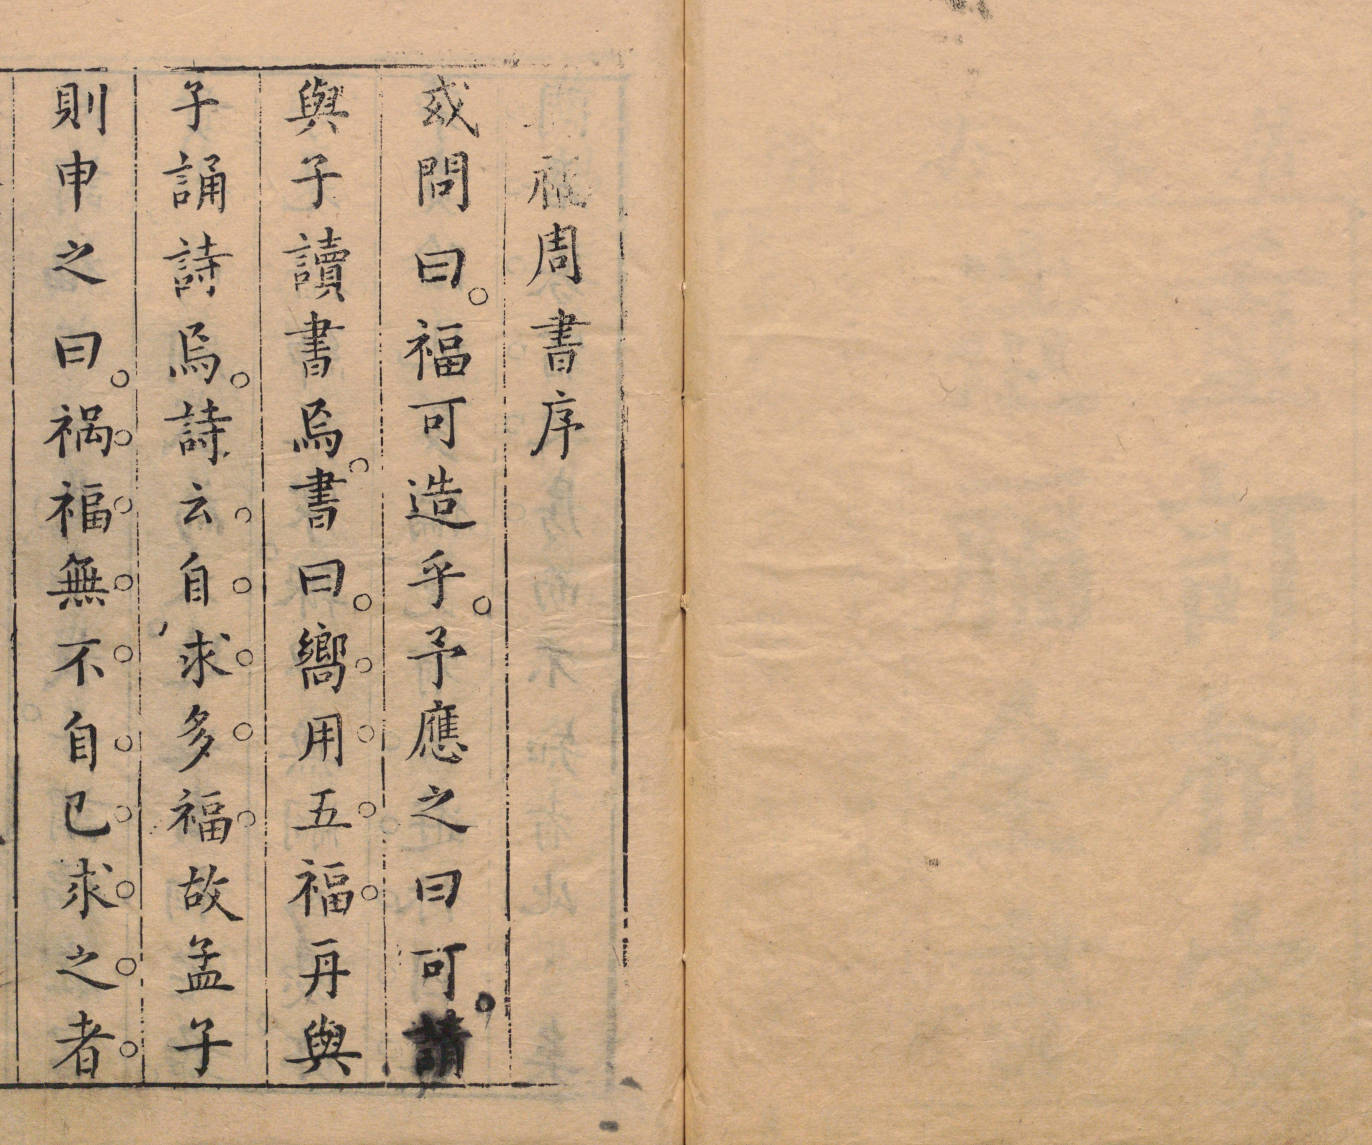 福周書序
或問曰。福可造乎。予應之曰可。請
與子讀書焉。書曰。嚮用五福。再與
子誦詩焉。詩云。自求多福。故孟子
則申之曰。禍福無不自己求之者。